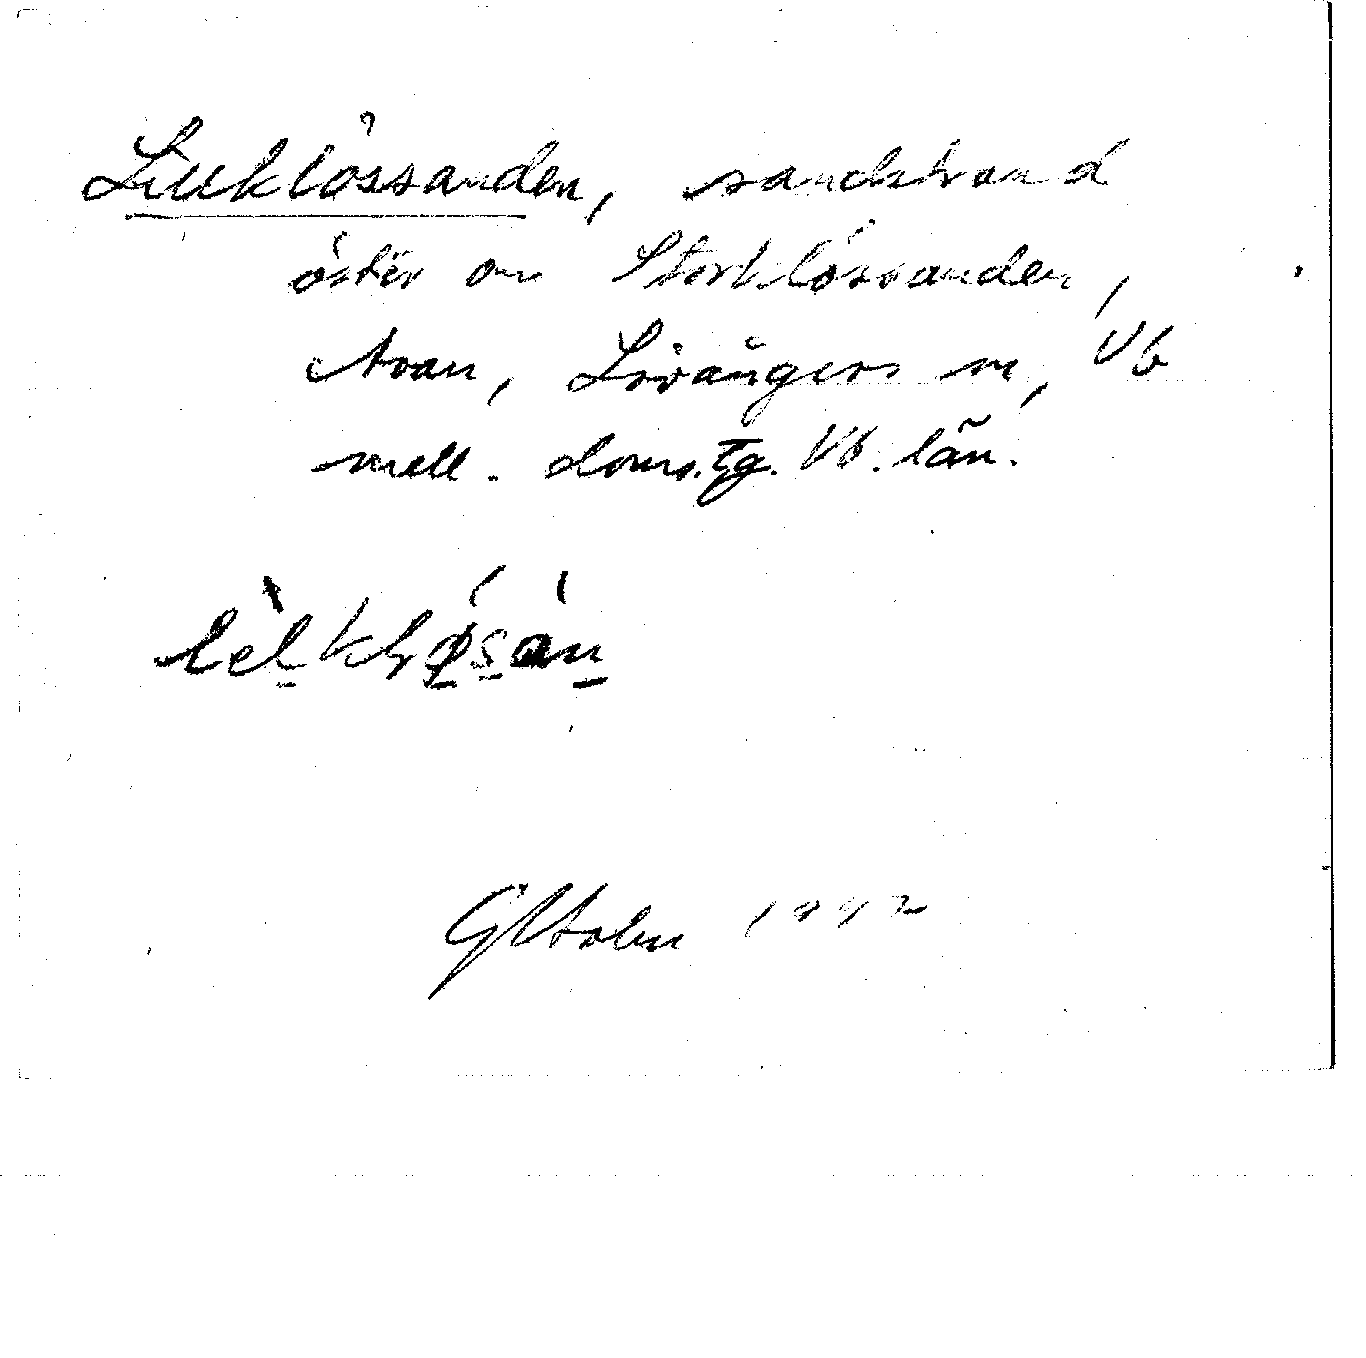 Lillklössanden, sandstrand
öster om Storklössanden,
Avan, Lövångers sn, Vb
mell. doms.tg. Vb. län.
G Holm 1942